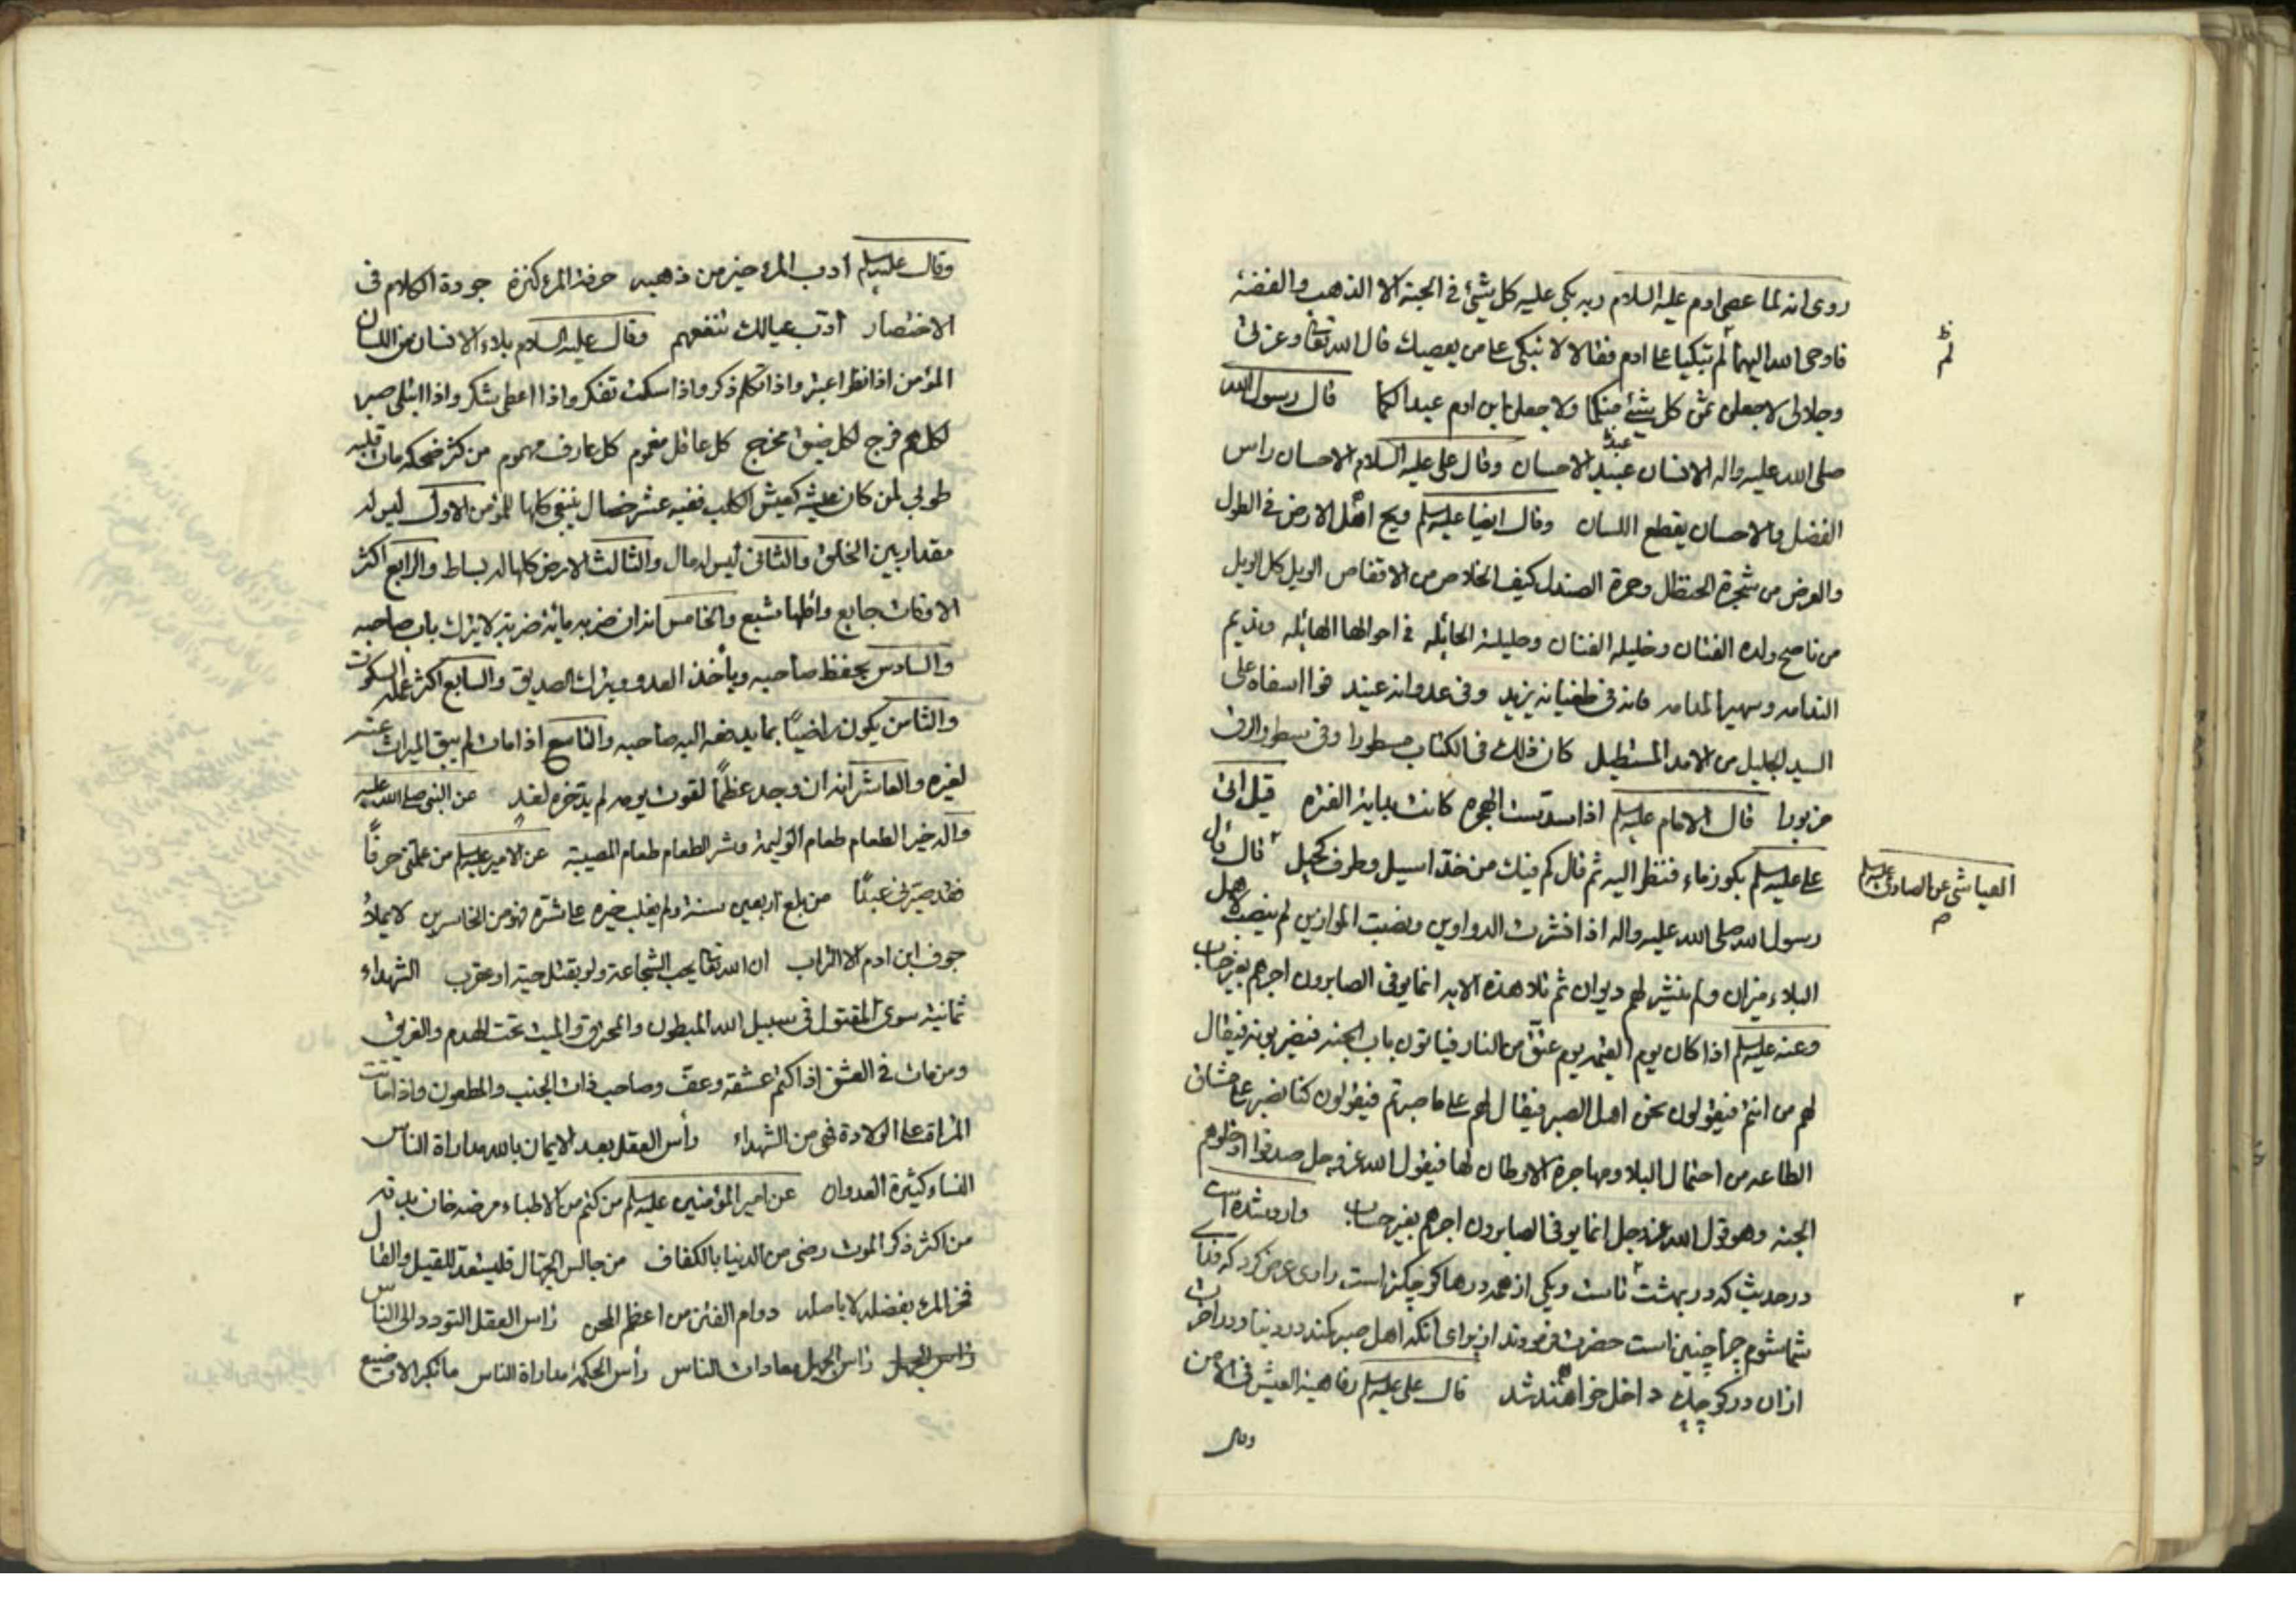 روى انه لما عصى ادم عليه السلام ربه بكى عليه كل شئ فى الجنة الا الذهب والفضة
فاوحى الله اليهما لم تبكيا على ادم فقالا لا نبكى على من يعصيك قال الله تعا وعزتى
وجلالى لاجعلن ثمن كل شئ منكما ولاجعلن ابن ادم عبدا لكما قال رسول الله
صلى الله عليه واله الانسان عبيد الاحسان وقال على عليه السلام الاحسان راس
عبد
الفضل والاحسان يقطع اللسان وقال ايضا عليه سلم ويح اهل الارض فى الطول
والعرض من شجرة الحنظل وحمرة الصندل كيف الخلاص من الاقفاص الويل كل الويل
من ناصح ولده الفتان وخليله الفتان وحليلته الحائله فى احوالها الهائله ونديم
الندامه وسهير الملامه فانه فى طغيانه يزيد وفى عدوانه عنيد فوا اسفاه على
السيد الجليل من الامد المستطيل كان ذلك فى الكتاب مسطورا وفى سطور
مزبورا قال الامام عليه سلم اذا كانت بداية الفترة قيل اتى
على عليه سلم بكوز ماء فنظر اليه ثم قال كم فيك من خد اسيل وطرف كحيل قال قال
رسول الله صلى الله عليه واله اذا نشرت الدواوين ونصبت الموازين لم ينصب لاهل
البلاء ميزان ولم ينشر لهم ديوان ثم تلا هذه الاية انما يوفى الصابرون اجرهم بغير حساب
وعنه عليه سلم اذا كان يوم القيمة يقوم عنق من النار فياتون باب الجنة فيضربونه فيقال
لهم من انتم فيقولون نحن اهل الصبر فيقال لهم على ما صبرتم فيقولون كنا نصبر على مشاق
الطاعه من احتمال البلا ومهاجرة الاوطان لها فيقول الله عز وجل صدقوا ادخلوهم
الجنة وهو قول الله عز وجل انما يوفى الصابرون اجرهم بغير حساب وارد شده است
در حديث كه در بهشت تاست ويكى از همه درها كوچكتر است راوى عرض كرد كه فداى
شما شوم چرا چنين است حضرت فرمودند از براى انكه اهل صبر كمند در دنيا ودر اخرت
ازان در كوچك داخل خواهند شد قال على عليه سلم رفاهية العيش فى الامن
وقال
لم
العياشى عن الصادق عليه سلم
٢
وقال عليه سلم أدب المرء خير من ذهبه حرفة المرء كنزه جودة الكلام فى
الاختصار أدّب عيالك تنفعهم وقال عليه السلام بلاء الانسان من اللسان
المؤمن اذا نظر اعتبر واذا تكلم ذكر واذا سكت تفكر واذا اعطى شكر واذا ابتلى صبر
لكل هم فرج لكل ضيق مخرج كل عاقل مغموم كل عارف مهموم من كثر ضحكه مات قلبه
طوبى لمن كان عيشه كعيش الكلب ففيه عشر خصال ينبغى كلها للمؤمن الاول ليس له
مقدار بين الخلق والثانى ليس له مال والثالث الارض كلها له بساط والرابع اكثر
الاوقات جايع واقلها شبع والخامس انه ان ضربه مائة ضربة لا يترك باب صاحبه
والسادس يحفظ صاحبه ويأخذ العدو ويترك الصديق والسابع اكثر عمله السكوت
والثامن يكون راضياً بما يدفعه اليه صاحبه والتاسع اذا مات لم يبق الميراث عنه
لغيره والعاشر انه ان وجد عظماً لقوت يومه لم يدّخره لغد عن النبى صلى الله عليه
واله خير الطعام طعام الوليمة وشر الطعام طعام المصيبة عن الامير عليه سلم من علمنى حرفاً
فقد صيّرنى عبداً من بلغ اربعين سنة ولم يغلب خيره على شره فهو من الخاسرين لا يملأ
جوف ابن ادم الا التراب ان الله تعا يحب الشجاعة ولو بقتل حية او عقرب الشهداء
ثمانية سوى المقتول فى سبيل الله المبطون والمحرق والميت تحت الهدم والغريق
ومن مات فى العشق اذا كتم عشقه وعفّ وصاحب ذات الجنب والمطعون واذا ماتت
المراة على الولادة فهى من الشهداء رأس العقل بعد الايمان بالله مداراة الناس
النساء كثيرة العدوان عن امير المؤمنين عليه سلم من كتم من الاطباء مرضه خان بدنه
من اكثر ذكر الموت رضى من الدنيا بالكفاف من جالس الجهّال فليستعدّ للقيل والقال
فخر المرء بفضله لا باصله دوام الفتن من اعظم المحن رأس العقل التودد الى الناس
رأس الجهل رأس الجهل معادات الناس رأس الحكمة مداراة الناس ما تكبر الا وضيع